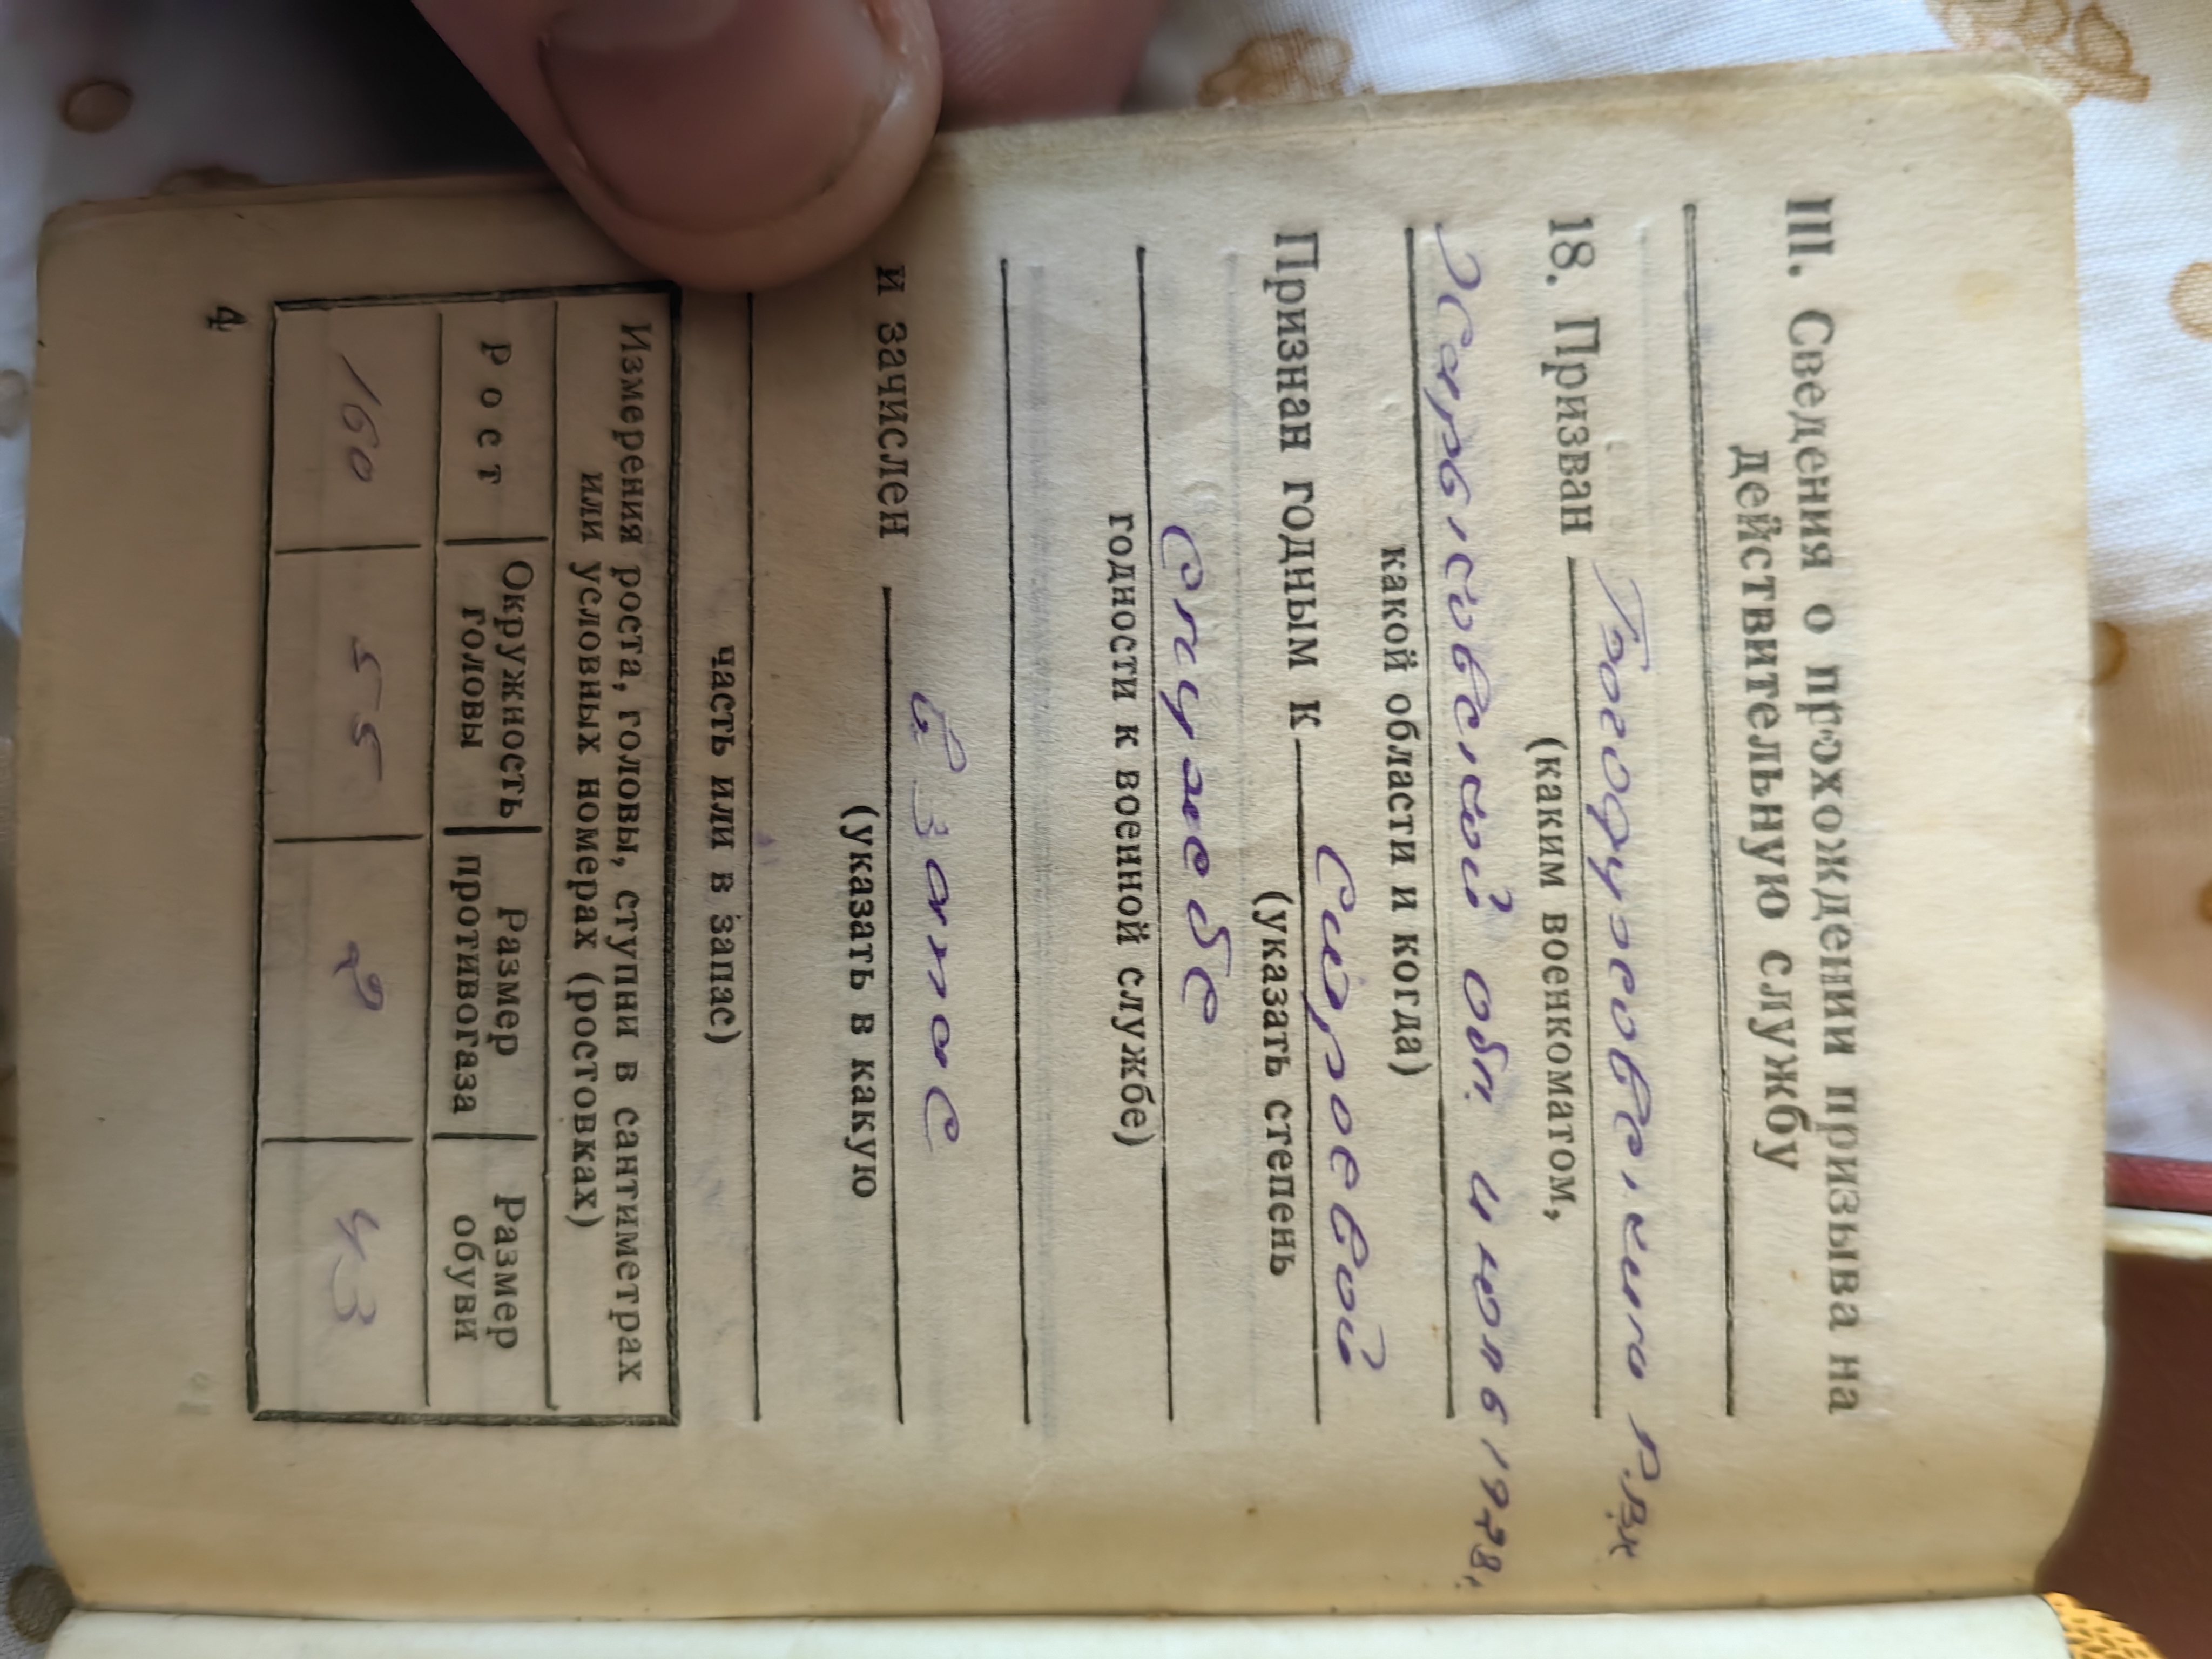 III. Сведения о прохождении призыва на
действительную службу
18. Призван Богодуховским РВК
(каким военкоматом,
Харьковской обл. июль 1928г.
какой области и когда)
Признан годным к строевой
(указать степень
службе
годности к военной службе)
и зачислен в запас
(указать в какую
часть или в запас)
Измерения роста, головы, ступни в сантиметрах
или условных номерах (ростовках)
Рост Окружность головы Размер противогаза Размер обуви
160 55 2 43
4